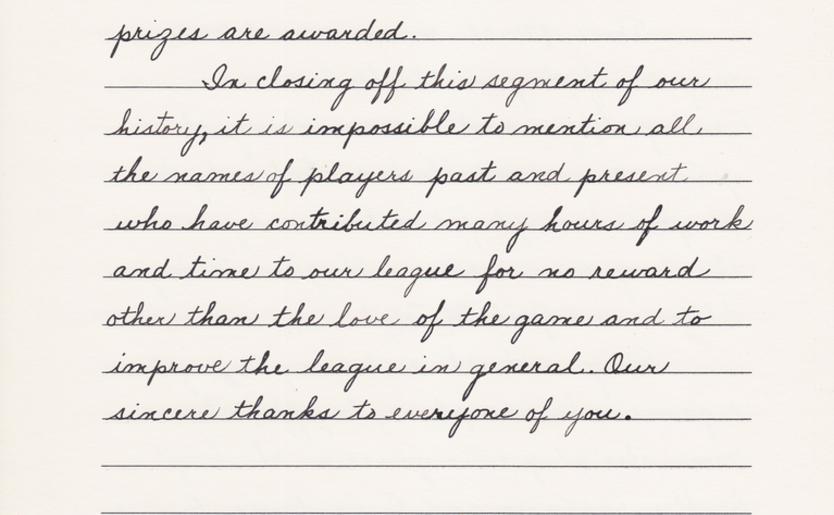 prizes are awarded.
In closing off this segment of our
history, it is impossible to mention all
the names of players past and present
who have contributed many hours of work
and time to our league for no reward
other than the love of the game and to
improve the league in general. Our
sincere thanks to everyone of you.